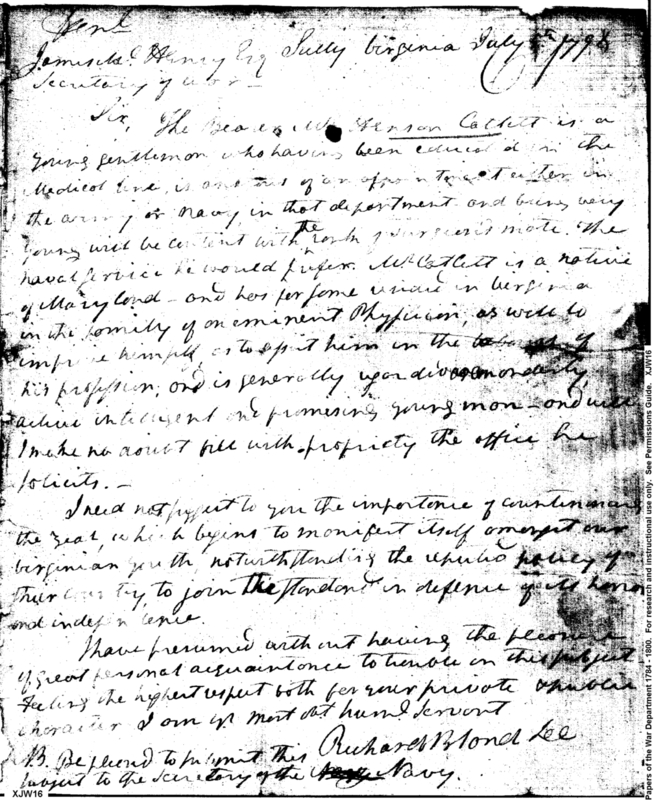 James Mc Henry Esq Sully Virginia July 1798
Secretary of war -
Sir, The Bearer Mr Henson Catlett is a
young gentleman who having been educated in the
Medical line, is of an appointment either in
the army or Navy in that department and being very
young will be content with the rank of surgeon's mate. The
naval service he would prefer. Mr Catlett is a native
of Maryland - and has for some resided in Virginia
in the family of an eminent Physician, as well to
improve himself as to assist him in the of
his profession, and is generally regarded as an orderly,
active intelligent and promising young man - and will
I make no doubt fill with propriety the office he
solicits. -
I need not suggest to you the importance of countenancing
the zeal, which begins to manifest itself amongst our
virginian youth, notwithstanding the policy of
their country, to join the standard in defence of its honor
and independence.
I have presumed without having the pleasure
of great personal acquaintance to trouble on this subject
Feeling the highest respect both for your private & public
character I am yr most obt huml Servant
Richard Bland Lee
NB. Be pleased to submit this
subject to the Secretary of the Navy.
XJW16
Papers of the War Department 1784 - 1800. For research and instructional use only. See Permissions Guide. XJW16